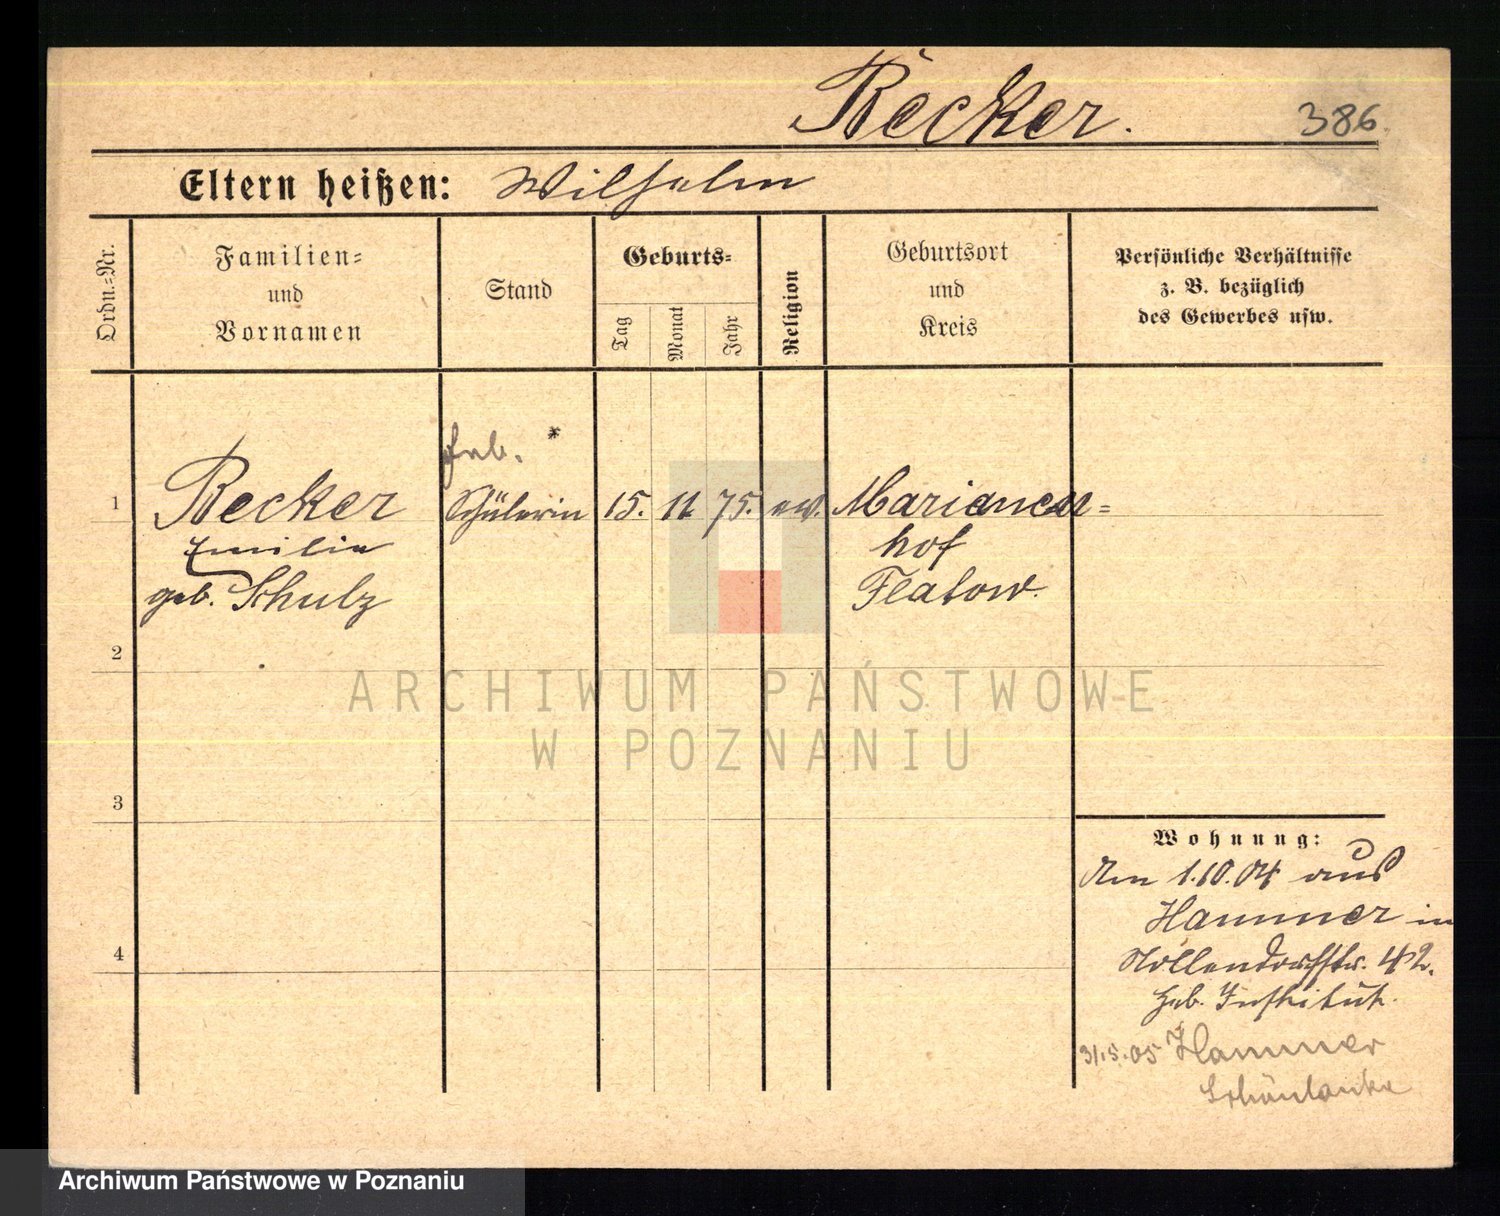 Becker.
386
Eltern heißen: Wilhelm
Ordn.-Nr.
Familien-
und
Vornamen
Stand
Geburts-
Tag
Monat
Jahr
Religion
Geburtsort
und
Kreis
Persönliche Verhältnisse
z. B. bezüglich
des Gewerbes usw.
Heb. *
1 Becker Schülerin 15. 11 75. ew. Mariannen-
Emilie hof
geb. Schulz Flatow
2
3
4
Wohnung:
Am 1.10.04 aus
Hammer in
Nollendorffstr. 42.
Heb. Institut.
31.5.05 Hammer
Schönlanke
ARCHIWUM PAŃSTWOWE
W POZNANIU
Archiwum Państwowe w Poznaniu